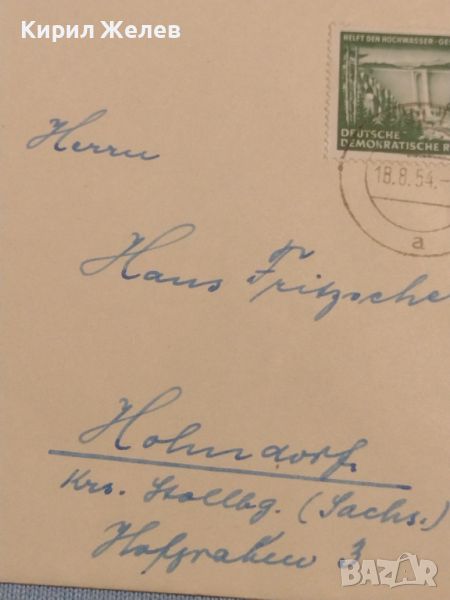 Кирил Желев
HELFT DEN HOCHWASSER-GE
DEUTSCHE
DEMOKRATISCHE R
18.8.54.-
a
Herrn
Hans Fritzsche
Hohndorf
Krs. Stollbg. (Sachs.)
3
bazar